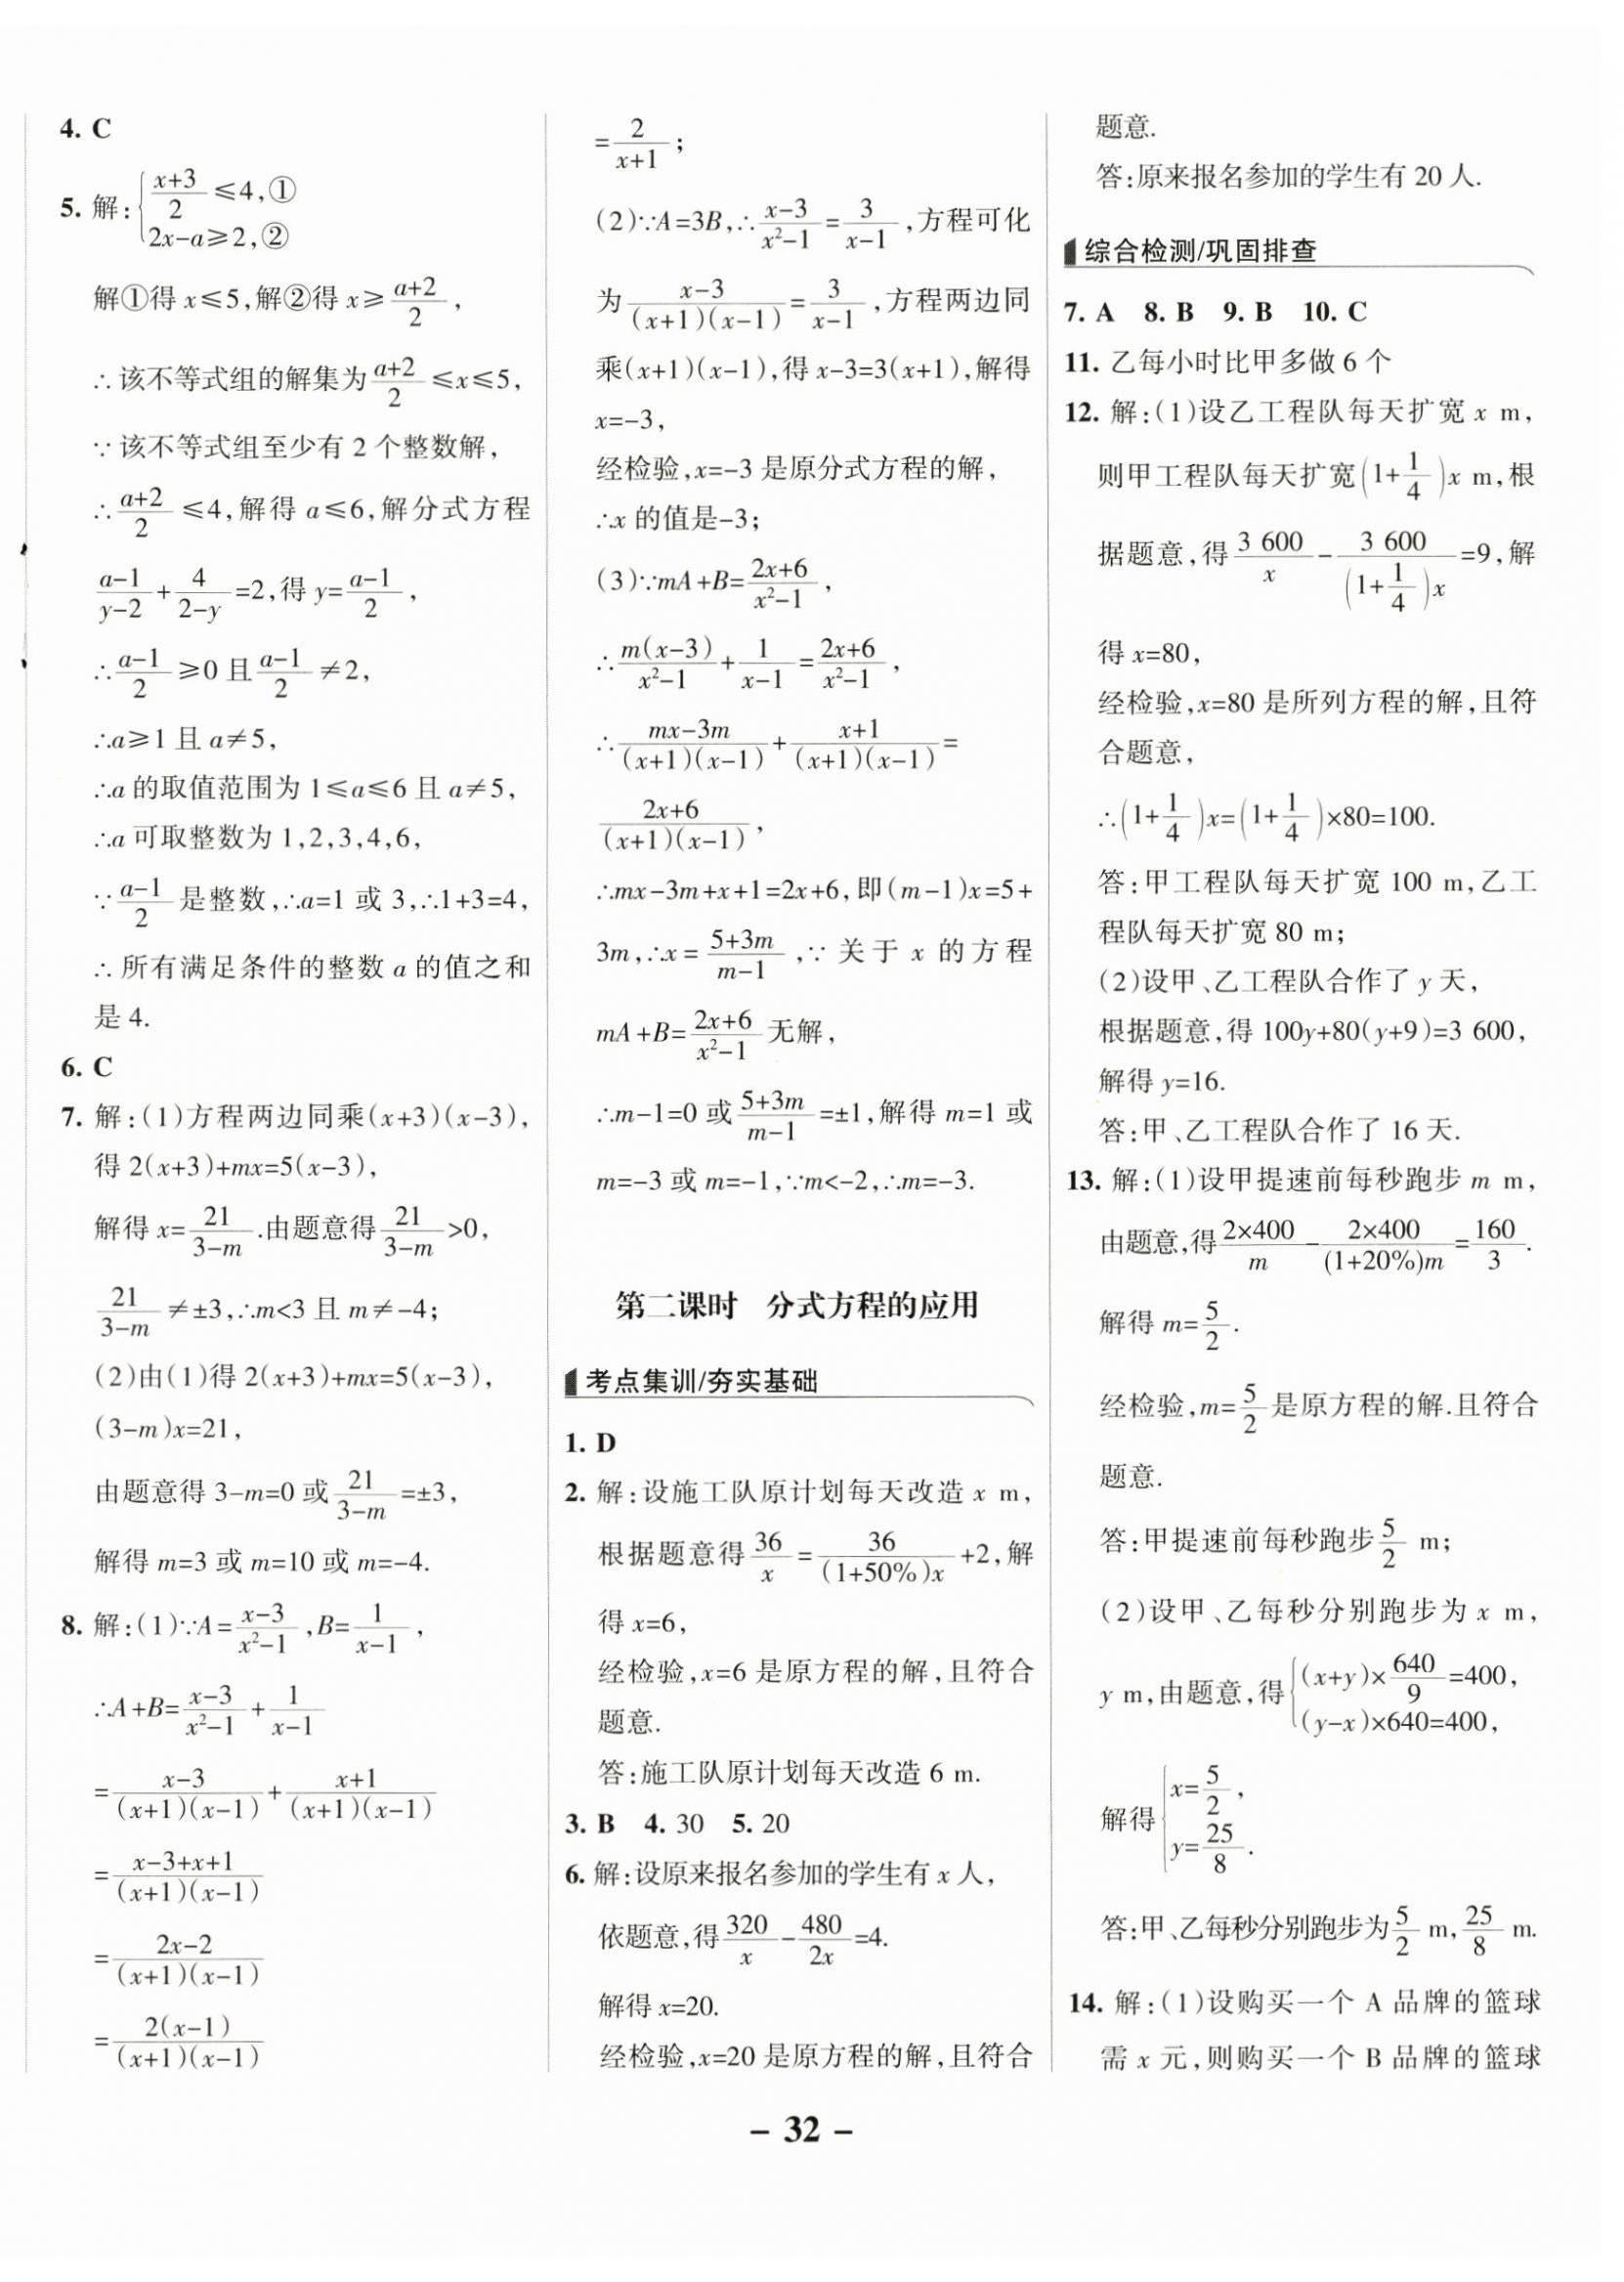 4. C
5. 解:{(x+3)/2≤4,①
2x-a≥2,②
解①得 x≤5,解②得 x≥(a+2)/2,
∴该不等式组的解集为(a+2)/2≤x≤5,
∵该不等式组至少有 2 个整数解,
∴(a+2)/2≤4,解得 a≤6,解分式方程
(a-1)/(y-2)+4/(2-y)=2,得 y=(a-1)/2,
∴(a-1)/2≥0 且(a-1)/2≠2,
∴a≥1 且 a≠5,
∴a 的取值范围为 1≤a≤6 且 a≠5,
∴a 可取整数为 1,2,3,4,6,
∵(a-1)/2 是整数,∴a=1 或 3,∴1+3=4,
∴所有满足条件的整数 a 的值之和
是 4.
6. C
7. 解:(1)方程两边同乘(x+3)(x-3),
得 2(x+3)+mx=5(x-3),
解得 x=21/(3-m).由题意得21/(3-m)>0,
21/(3-m)≠±3,∴m<3 且 m≠-4;
(2)由(1)得 2(x+3)+mx=5(x-3),
(3-m)x=21,
由题意得 3-m=0 或21/(3-m)=±3,
解得 m=3 或 m=10 或 m=-4.
8. 解:(1)∵A=(x-3)/(x²-1),B=1/(x-1),
∴A+B=(x-3)/(x²-1)+1/(x-1)
=(x-3)/((x+1)(x-1))+(x+1)/((x+1)(x-1))
=(x-3+x+1)/((x+1)(x-1))
=(2x-2)/((x+1)(x-1))
=2(x-1)/((x+1)(x-1))
=2/(x+1);
(2)∵A=3B,∴(x-3)/(x²-1)=3/(x-1),方程可化
为(x-3)/((x+1)(x-1))=3/(x-1),方程两边同
乘(x+1)(x-1),得 x-3=3(x+1),解得
x=-3,
经检验,x=-3 是原分式方程的解,
∴x 的值是-3;
(3)∵mA+B=(2x+6)/(x²-1),
∴m(x-3)/(x²-1)+1/(x-1)=(2x+6)/(x²-1),
∴(mx-3m)/((x+1)(x-1))+(x+1)/((x+1)(x-1))=
(2x+6)/((x+1)(x-1)),
∴mx-3m+x+1=2x+6,即(m-1)x=5+
3m,∴x=(5+3m)/(m-1),∵关于 x 的方程
mA+B=(2x+6)/(x²-1)无解,
∴m-1=0 或(5+3m)/(m-1)=±1,解得 m=1 或
m=-3 或 m=-1,∵m<-2,∴m=-3.
第二课时 分式方程的应用
考点集训/夯实基础
1. D
2. 解:设施工队原计划每天改造 x m,
根据题意得36/x=36/((1+50%)x)+2,解
得 x=6,
经检验,x=6 是原方程的解,且符合
题意.
答:施工队原计划每天改造 6 m.
3. B 4. 30 5. 20
6. 解:设原来报名参加的学生有 x 人,
依题意,得320/x-480/2x=4.
解得 x=20.
经检验,x=20 是原方程的解,且符合
题意.
答:原来报名参加的学生有 20 人.
综合检测/巩固排查
7. A 8. B 9. B 10. C
11. 乙每小时比甲多做 6 个
12. 解:(1)设乙工程队每天扩宽 x m,
则甲工程队每天扩宽(1+1/4)x m,根
据题意,得3 600/x-3 600/((1+1/4)x)=9,解
得 x=80,
经检验,x=80 是所列方程的解,且符
合题意,
∴(1+1/4)x=(1+1/4)×80=100.
答:甲工程队每天扩宽 100 m,乙工
程队每天扩宽 80 m;
(2)设甲、乙工程队合作了 y 天,
根据题意,得 100y+80(y+9)=3 600,
解得 y=16.
答:甲、乙工程队合作了 16 天.
13. 解:(1)设甲提速前每秒跑步 m m,
由题意,得(2×400)/m-(2×400)/((1+20%)m)=160/3.
解得 m=5/2.
经检验,m=5/2是原方程的解.且符合
题意.
答:甲提速前每秒跑步5/2 m;
(2)设甲、乙每秒分别跑步为 x m,
y m,由题意,得{(x+y)×640/9=400,
(y-x)×640=400,
解得{x=5/2,
y=25/8.
答:甲、乙每秒分别跑步为5/2 m,25/8 m.
14. 解:(1)设购买一个 A 品牌的篮球
需 x 元,则购买一个 B 品牌的篮球
- 32 -